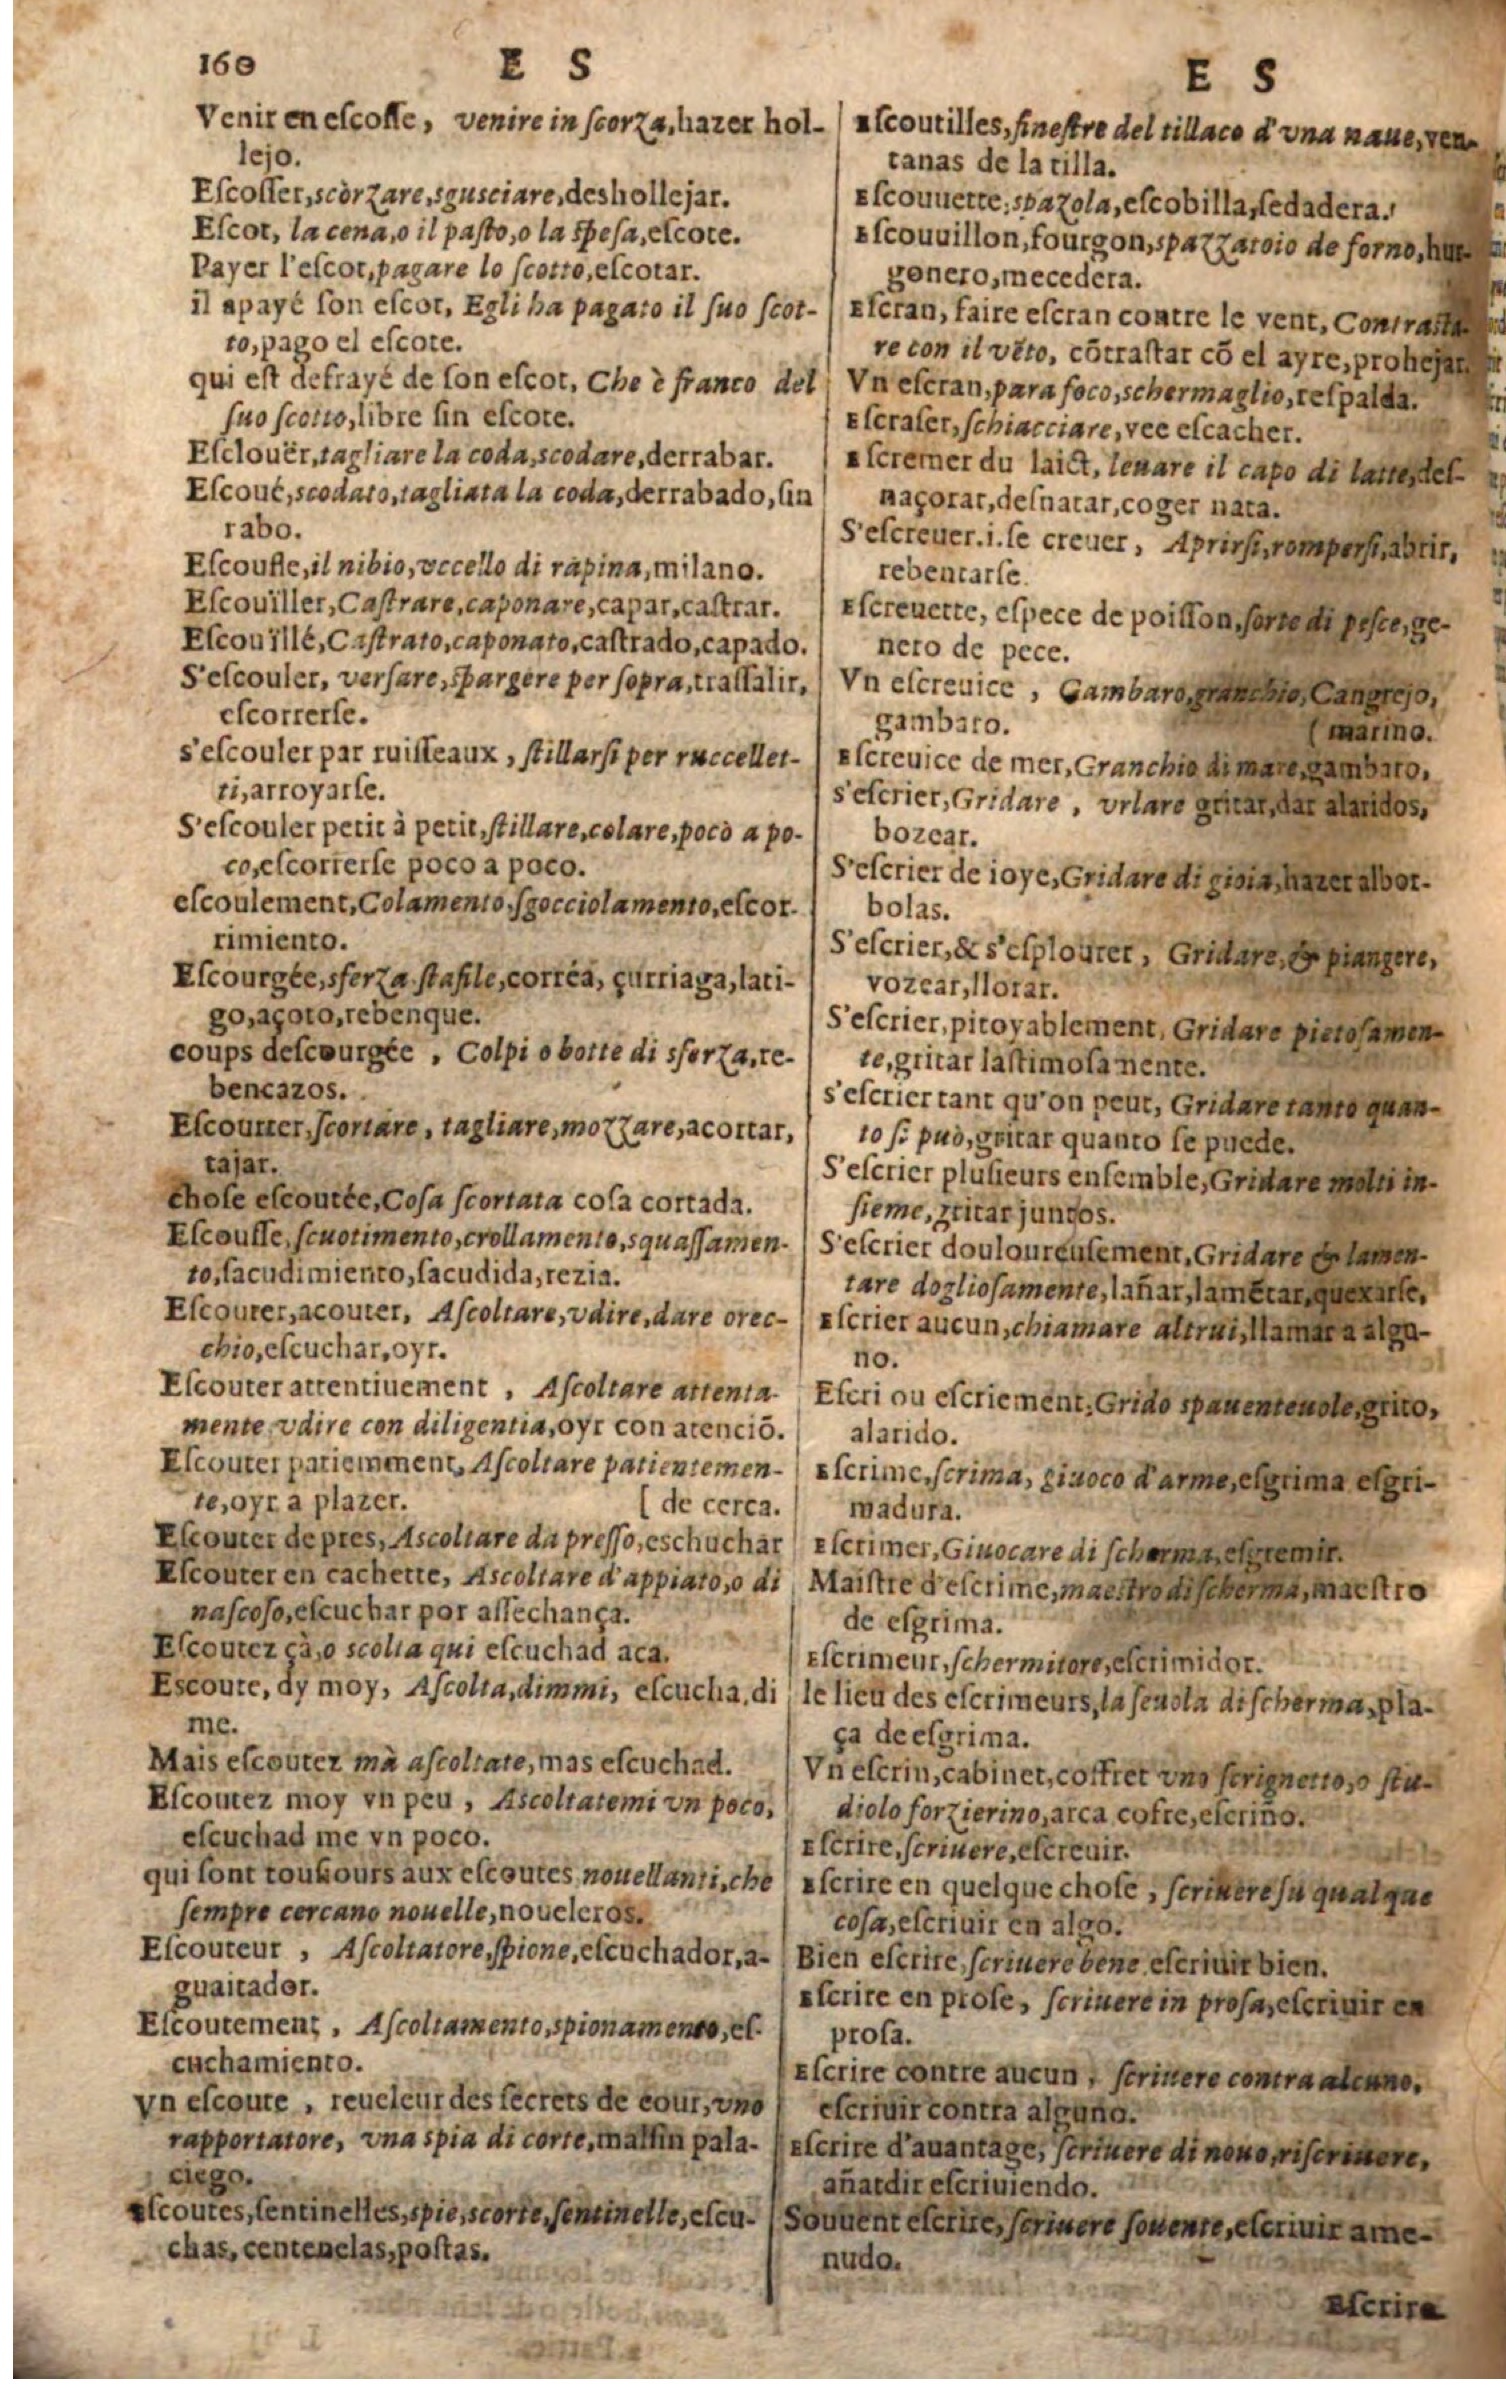 160 E S
Venir en escosse, venire in scorza, hazer hol-
lejo.
Escosser, scòrzare, sgusciare, deshollejar.
Escot, la cena, o il pasto, o la spesa, escote.
Payer l'escot, pagare lo scotto, escotar.
il apayé son escot, Egli ha pagato il suo scot-
to, pago el escote.
qui est defrayé de son escot, Che è franco del
suo scotto, libre sin escote.
Esclouër, tagliare la coda, scodare, derrabar.
Escoué, scodato, tagliata la coda, derrabado, sin
rabo.
Escoufle, il nibio, vccello di ràpina, milano.
Escouïller, Castrare, caponare, capar, castrar.
Escouïllé, Castrato, caponato, castrado, capado.
S'escouler, versare, spargere per sopra, trassalir,
escorrerse.
s'escouler par ruisseaux, stillarsi per ruccellet-
ti, arroyarse.
S'escouler petit à petit, stillare, colare, pocò a po-
co, escorrerse poco a poco.
escoulement, Colamento, sgocciolamento, escor-
rimiento.
Escourgée, sferza stafile, corréa, çurriaga, lati-
go, açoto, rebenque.
coups descourgée, Colpi o botte di sferza, re-
bencazos.
Escourter, scortare, tagliare, mozzare, acortar,
tajar.
chose escoutée, Cosa scortata cosa cortada.
Escousse, scuotimento, crollamento, squassamen-
to, sacudimiento, sacudida, rezia.
Escouter, acouter, Ascoltare, vdire, dare orec-
chio, escuchar, oyr.
Escouter attentiuement, Ascoltare attenta-
mente vdire con diligentia, oyr con atenciõ.
Escouter patiemment, Ascoltare patientemen-
te, oyr a plazer. [ de cerca.
Escouter de pres, Ascoltare da presso, eschuchar
Escouter en cachette, Ascoltare d'appiato, o di
nascoso, escuchar por assechança.
Escoutez çà, o scolta qui escuchad aca.
Escoute, dy moy, Ascolta, dimmi, escucha, di
me.
Mais escoutez mà ascoltate, mas escuchad.
Escoutez moy vn peu, Ascoltatemi vn poco,
escuchad me vn poco.
qui sont tousiours aux escoutes nouellanti, che
sempre cercano nouelle, noueleros.
Escouteur, Ascoltatore, spione, escuchador, a-
guaitador.
Escoutement, Ascoltamento, spionamento, es-
cuchamiento.
vn escoute, reueleur des secrets de cour, vno
rapportatore, vna spia di corte, malsin pala-
ciego.
Escoutes, sentinelles, spie, scorte, sentinelle, escu-
chas, centenelas, postas.
E S
Escoutilles, finestre del tillaco d'vna naue, ven-
tanas de la tilla.
Escouuette, spazola, escobilla, sedadera.
Escouuillon, fourgon, spazzatoio de forno, hur-
gonero, mecedera.
Escran, faire escran contre le vent, Contrasta-
re con il vẽto, cõtrastar cõ el ayre, prohejar.
Vn escran, para foco, schermaglio, respalda.
Escraser, schiacciare, vee escacher.
Escremer du laict, leuare il capo di latte, des-
naçorar, desnatar, coger nata.
S'escreuer. i. se creuer, Aprirsi, rompersi, abrir,
rebentarse.
Escreuette, espece de poisson, sorte di pesce, ge-
nero de pece.
Vn escreuice, Gambaro, granchio, Cangrejo,
gambaro. ( marino.
Escreuice de mer, Granchio di mare, gambaro,
s'escrier, Gridare, vrlare gritar, dar alaridos,
bozear.
S'escrier de ioye, Gridare di gioia, hazer albor-
bolas.
S'escrier, & s'esplourer, Gridare, & piangere,
vozear, llorar.
S'escrier, pitoyablement, Gridare pietosamen-
te, gritar lastimosamente.
s'escrier tant qu'on peut, Gridare tanto quan-
to si può, gritar quanto se puede.
S'escrier plusieurs ensemble, Gridare molti in-
sieme, gritar juntos.
S'escrier douloureusement, Gridare & lamen-
tare dogliosamente, lañar, lamẽtar, quexarse,
Escrier aucun, chiamare altrui, llamar a algu-
no.
Escri ou escriement, Grido spauenteuole, grito,
alarido.
Escrime, scrima, giuoco d'arme, esgrima esgri-
madura.
Escrimer, Giuocare di scherma, esgremir.
Maistre d'escrime, maestro di scherma, maestro
de esgrima.
Escrimeur, schermitore, escrimidor.
le lieu des escrimeurs, la scuola di scherma, pla-
ça de esgrima.
Vn escrin, cabinet, coffret vno scrignetto, o stu-
diolo forzierino, arca cofre, escriño.
Escrire, scriuere, escreuir.
Escrire en quelque chose, scriuere su qualque
cosa, escriuir en algo.
Bien escrire, scriuere bene escriuir bien.
Escrire en prose, scriuere in prosa, escriuir en
prosa.
Escrire contre aucun, scriuere contra alcuno,
escriuir contra alguno.
Escrire d'auantage, scriuere di nouo, riscriuere,
añardir escriuiendo.
Souuent escrire, scriuere souente, escriuir ame-
nudo.
Escrire